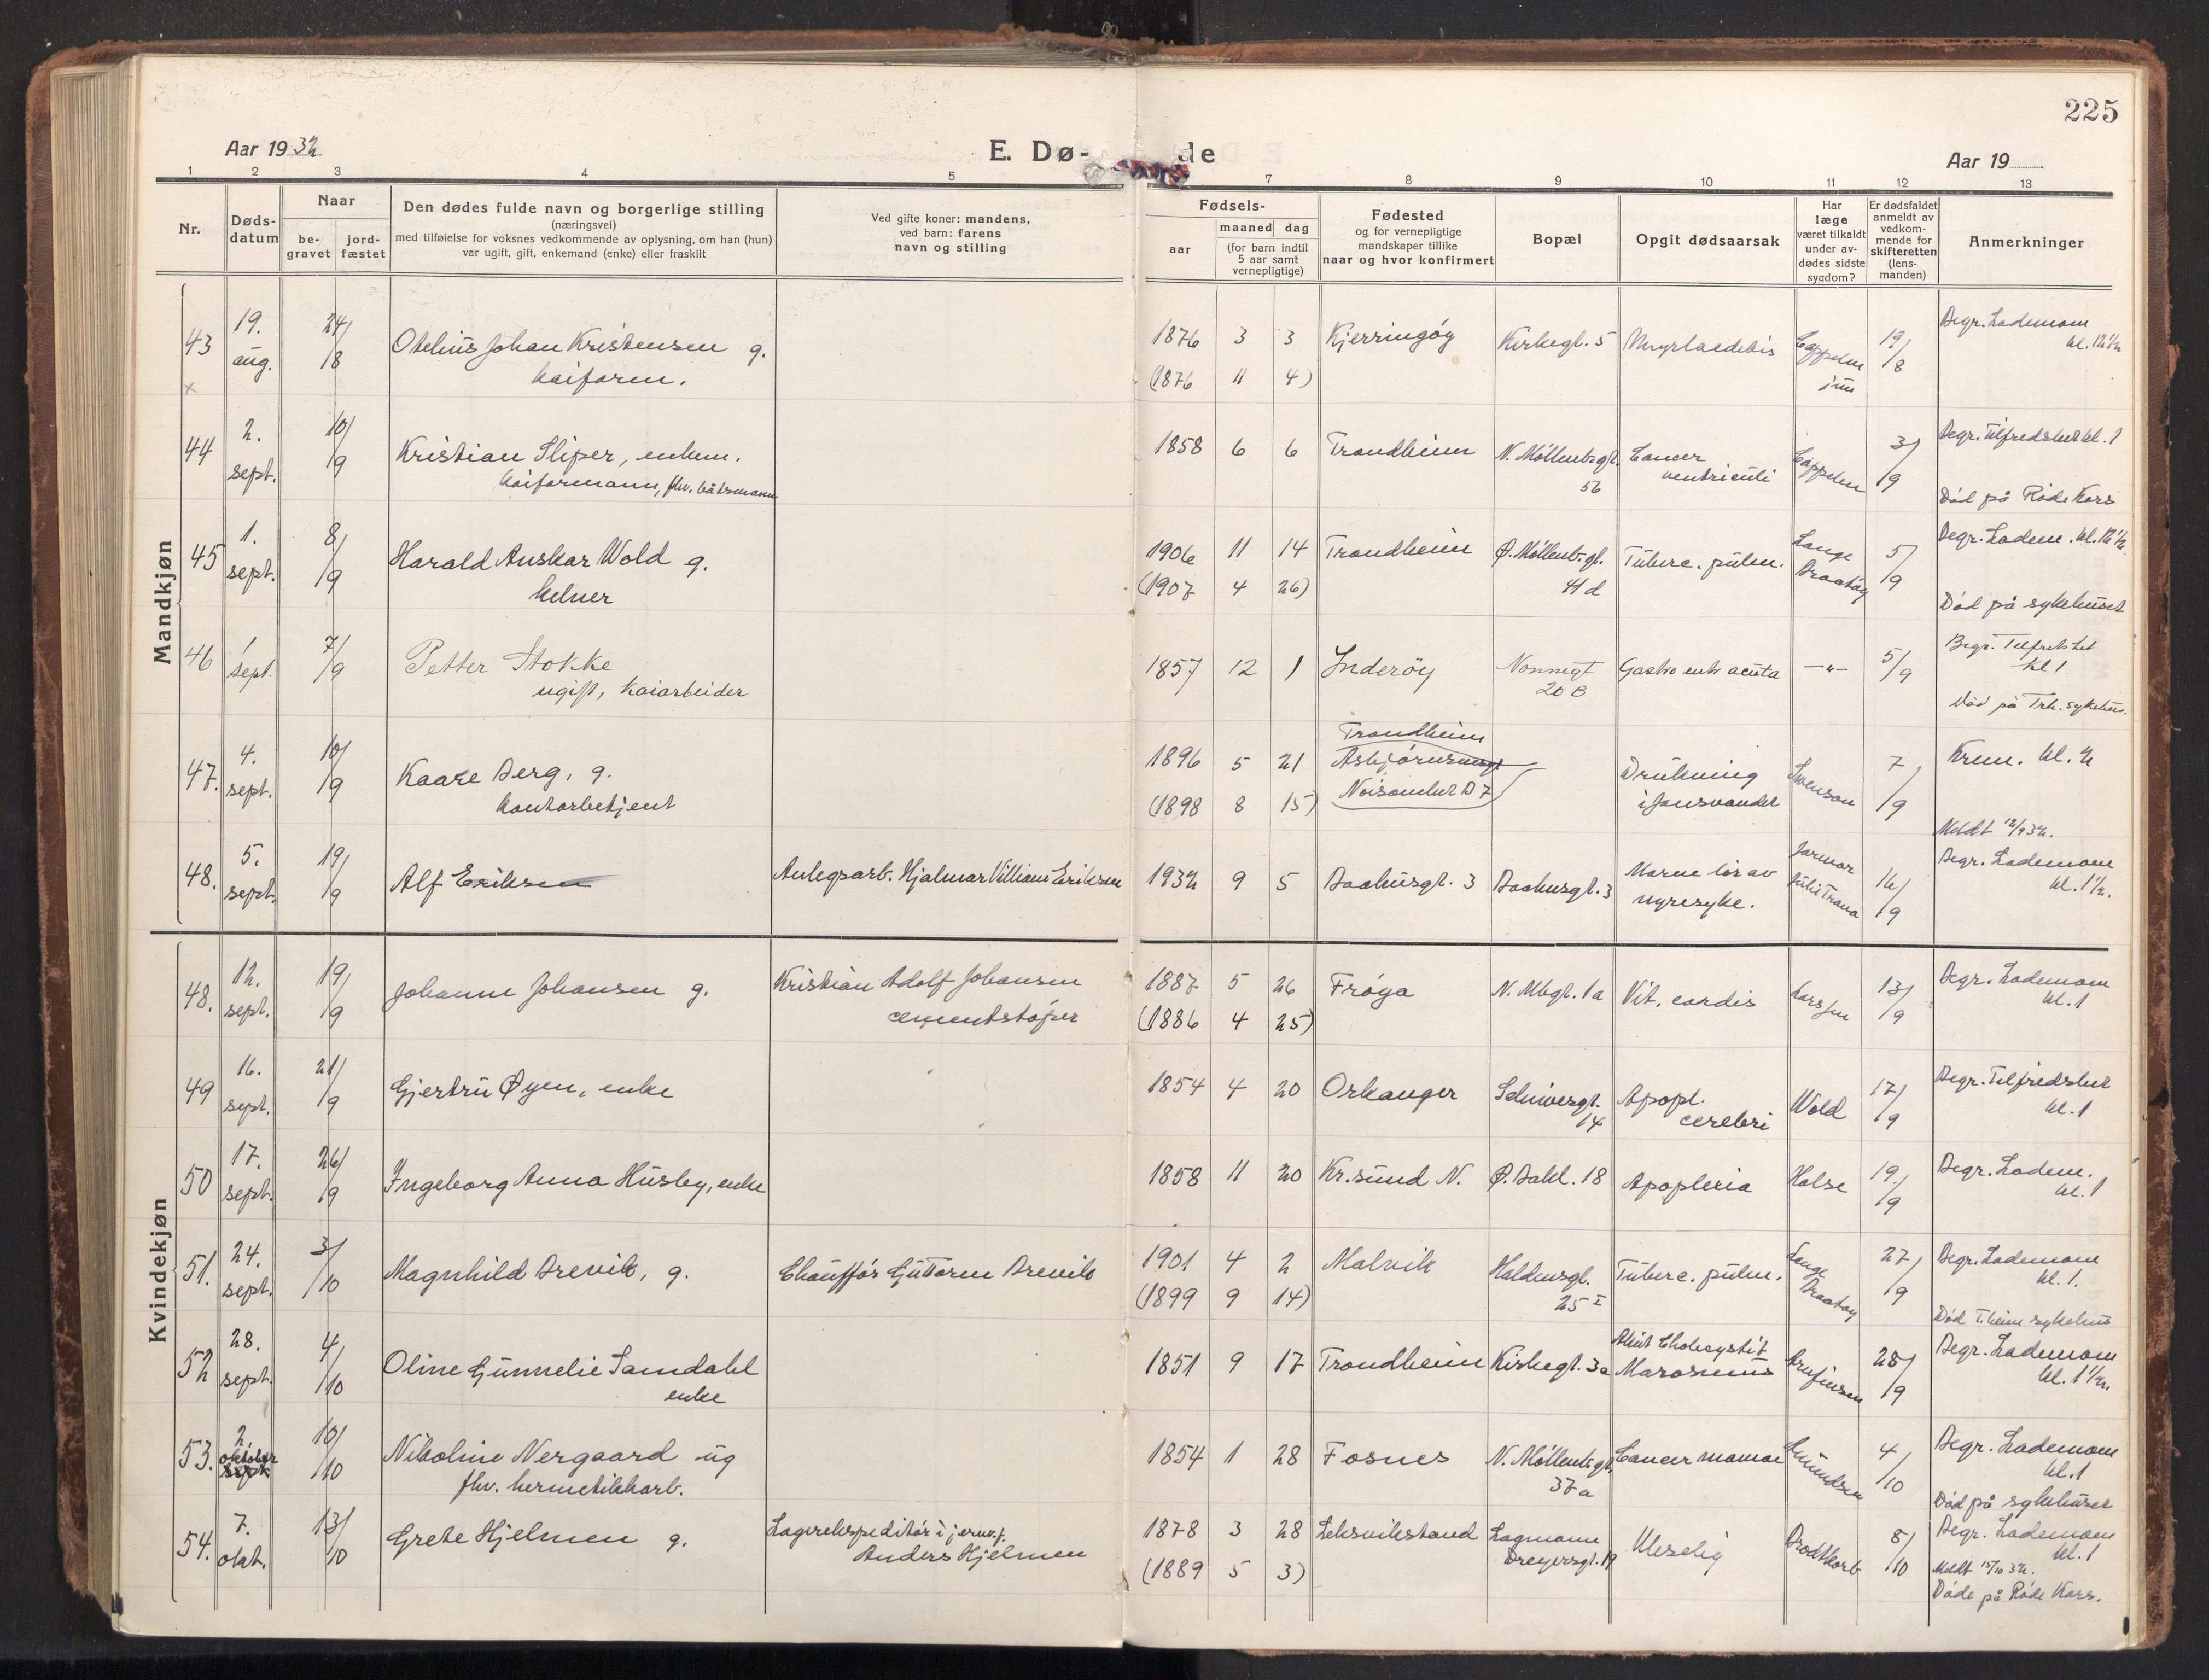 225
Aar 1932
E. Dø- de
Aar 19
1 2 3 4 5 7 8 9 10 11 12 13
Nr.
Døds-
datum
Naar
be-
gravet
jord-
fæstet
Den dødes fulde navn og borgerlige stilling
(næringsvei)
med tilføielse for voksnes vedkommende av oplysning, om han (hun)
var ugift, gift, enkemand (enke) eller fraskilt
Ved gifte koner: mandens,
ved barn: farens
navn og stilling
Fødsels-
aar
maaned dag
(for barn indtil
5 aar samt
vernepligtige)
Fødested
og for vernepligtige
mandskaper tillike
naar og hvor konfirmert
Bopæl
Opgit dødsaarsak
Har
læge
været tilkaldt
under av-
dødes sidste
sygdom?
Er dødsfaldet
anmeldt av
vedkom-
mende for
skifteretten
(lens-
manden)
Anmerkninger
Mandkjøn
43 19. aug. 24/8 Otelius Johan Kristensen g. 1876 3 3 Kjerringöy Kirkegt. 5 Cappelen 19/8 Begr. Lademoen
kl. 12 1/2
x kaiform. (1876 11 4) jun
44 2. sept. 10/9 Kristian Sliper, enkem. 1858 6 6 Trondheim N. Möllenbgt. Cancer Cappelen 3/9 Begr. Tilfredshet kl. 1
kaiformann, fhv. båtsmann 56 ventriculi Död på Röde Kors
45 1. sept. 8/9 Harald Anskar Wold g. 1906 11 14 Trondheim Ø. Möllenb.gt. Tuberc. pulm. Lange 5/9 Begr. Ladem. kl. 12 1/2
kelner (1907 4 26) 41 d Braatöy Död på sykehuset
46 1 sept. 7/9 Petter Stokke 1857 12 1 Inderöy Nonnegt Gastro entr acuta -"- 5/9 Begr. Tilfredshet
ugift, kaiarbeider 20 B kl 1
Död på Trh. sykehus.
47. 4. sept. 10/9 Kaare Berg, g. 1896 5 21 Trondheim Drukning Swenson 7/9 Krem. kl. 2
kontorbetjent (1898 8 15) Asbjörnsensgt i Jonsvandet
48. 5. sept. 19/9 Alf Eriksen Anlegsarb. Hjalmar Villiam Eriksen 1932 9 5 Baahusgt. 3 Baahusgt. 3 Moren lir av Jormor 16/9 Meldt 12/9 32.
nyresyke. Begr. Lademoen
kl. 1 1/2.
Kvindekjøn
48. 12. sept. 19/9 Johanne Johansen g. Kristian Adolf Johansen 1887 5 26 Fröya N. Mbgt. 1a Vit. cordis 13/9 Begr. Lademoen
cementstöper (1886 4 25) kl. 1
49 16. sept. 21/9 Gjertru Øyen, enke 1854 4 20 Orkanger Schivesgt. Apopl. Wold 17/9 Begr. Tilfredshet
14 cerebri kl. 1
50 17. sept. 26/9 Ingeborg Anna Husby, enke 1858 11 20 Kr.sund N. Ø. Bakl. 18 Apoplexia Halse 19./9 Begr. Ladem.
kl. 1
51. 24. sept. 3/10 Magnhild Brevik, g. Chaufför Guttorm Brevik 1901 4 2 Malvik Haldensgt. Tuberc. pulm. Lange 27/9 Begr. Lademoen
(1899 9 14) 25 I Braatöy kl. 1.
Död T.heim sykehus
52 28. sept. 4/10 Oline Gunnelie Samdahl 1851 9 17 Trondheim Kirkegt. 3a Akut Cholecystit 28/9 Begr. Lademoen
enke Marasmus kl. 1 1/2.
53. 2. oktober sept. 10/10 Nikoline Nergaard ug 1854 1 28 Fosnes N. Möllenb.gt. Cancer mamae 4/10 Begr. Lademoen
fhv. hermetikkarb. 37 a kl. 1
Död på sykehuset
54. 7. okt. 13/10 Grete Hjelmen g. Lagerekspeditör i jernv.f. 1878 3 28 Leksvikstrand Lagmann Uleselig Brodtkorb 8/10 Begr. Lademoen
Anders Hjelmen (1889 5 3) Dreyersgt. 19 kl. 1
Meldt 15/10 32.
Döde på Röde Kors.